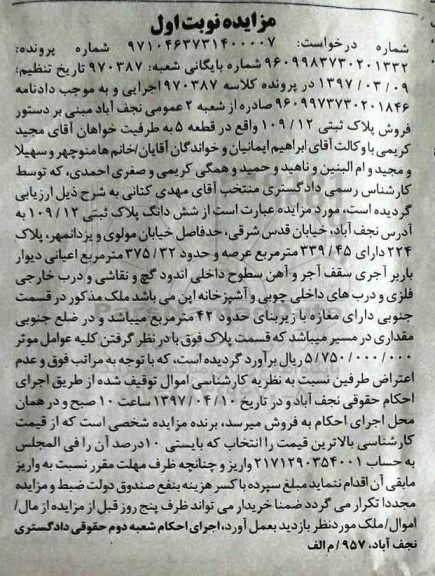 مزایده نوبت اول
شماره درخواست: ۹۷۱۰۴۶۳۷۳۱۴۰۰۰۰۷ شماره پرونده:
۹۶۰۹۹۸۳۷۳۰۲۰۱۳۳۲ شماره بایگانی شعبه: ۹۷۰۳۸۷ تاریخ تنظیم:
۱۳۹۷/۰۳/۰۹ در پرونده کلاسه ۹۷۰۳۸۷ اجرایی و به موجب دادنامه
۹۶۰۹۹۷۳۷۳۰۲۰۱۸۴۶ صادره از شعبه ۲ عمومی نجف آباد مبنی بر دستور
فروش پلاک ثبتی ۱۰۹/۱۲ واقع در قطعه ۵ به طرفیت خواهان آقای مجید
کریمی با وکالت آقای ابراهیم ایمانیان و خواندگان آقایان/خانم ها منوچهر و سهیلا
و مجید و ام البنین و ناهید و حمید و همگی کریمی و صغری احمدی، که توسط
کارشناس رسمی دادگستری منتخب آقای مهدی کتانی به شرح ذیل ارزیابی
گردیده است، مورد مزایده عبارت است از شش دانگ پلاک ثبتی ۱۰۹/۱۲ به
آدرس نجف آباد، خیابان قدس شرقی، حدفاصل خیابان مولوی و یزدانمهر، پلاک
۲۲۴ دارای ۳۳۹/۴۵ مترمربع عرصه و حدود ۳۷۵/۳۲ مترمربع اعیانی دیوار
باربر آجری سقف آجر و آهن سطوح داخلی اندود گچ و نقاشی و درب خارجی
فلزی و درب های داخلی چوبی و آشپزخانه اپن می باشد ملک مذکور در قسمت
جنوبی دارای مغازه با زیربنای حدود ۴۲ مترمربع میباشد و در ضلع جنوبی
مقداری در مسیر میباشد که قسمت پلاک فوق با در نظر گرفتن کلیه عوامل موثر
۵/۷۵۰/۰۰۰/۰۰۰ ریال برآورد گردیده است، که با توجه به مراتب فوق و عدم
اعتراض طرفین نسبت به نظریه کارشناسی اموال توقیف شده از طریق اجرای
احکام حقوقی نجف آباد و در تاریخ ۱۳۹۷/۰۴/۱۰ ساعت ۱۰ صبح و در همان
محل اجرای احکام به فروش میرسد، برنده مزایده شخصی است که از قیمت
کارشناسی بالاترین قیمت را انتخاب که بایستی ۱۰درصد آن را فی المجلس
به حساب ۲۱۷۱۲۹۰۳۵۴۰۰۱ واریز و چنانچه ظرف مهلت مقرر نسبت به واریز
مابقی آن اقدام ننماید مبلغ سپرده با کسر هزینه بنفع صندوق دولت ضبط و مزایده
مجددا تکرار می گردد ضمنا خریدار می تواند ظرف پنج روز قبل از مزایده از مال/
اموال/ملک موردنظر بازدید بعمل آورد، اجرای احکام شعبه دوم حقوقی دادگستری
نجف آباد، ۹۵۷/م الف